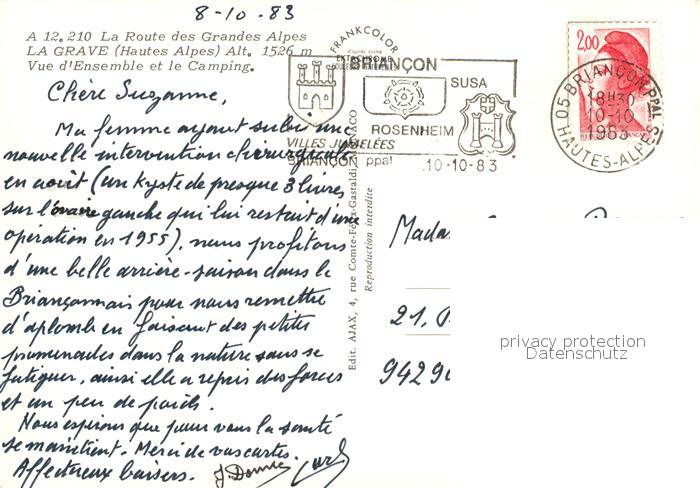 8-10.83
A 12.210 La Route des Grandes Alpes
LA GRAVE (Hautes Alpes) Alt. 1526 m
Vue d'Ensemble et le Camping.
Chère Suzanne,
Ma femme ayant subi une
nouvelle intervention chirurgicale
en août (un kyste de presque 3 livres
sur l'ovaire gauche qui lui restait d'une
opération en 1955), nous profitons
d'une belle arrière-saison dans le
Briançonnais pour nous remettre
d'aplomb en faisant des petites
promenades dans la nature sans se
fatiguer, ainsi elle a repris des forces
et un peu de poids.
Nous espérons que pour vous la santé
se maintient. Merci de vos cartes.
Affectueux baisers.
FRANKCOLOR
d'après cliché
EKTACHROME
BRIANÇON
SUSA
ROSENHEIM
VILLES JUMELÉES
BRIANÇON ppal
10-10-83
2,00
05 BRIANÇON PPAL
18H30
10-10
1983
HAUTES-ALPES
Edit. AJAX, 4, rue Comte-Félix-Gastaldi, MONACO
Reproduction interdite
21,
9429
privacy protection
Datenschutz